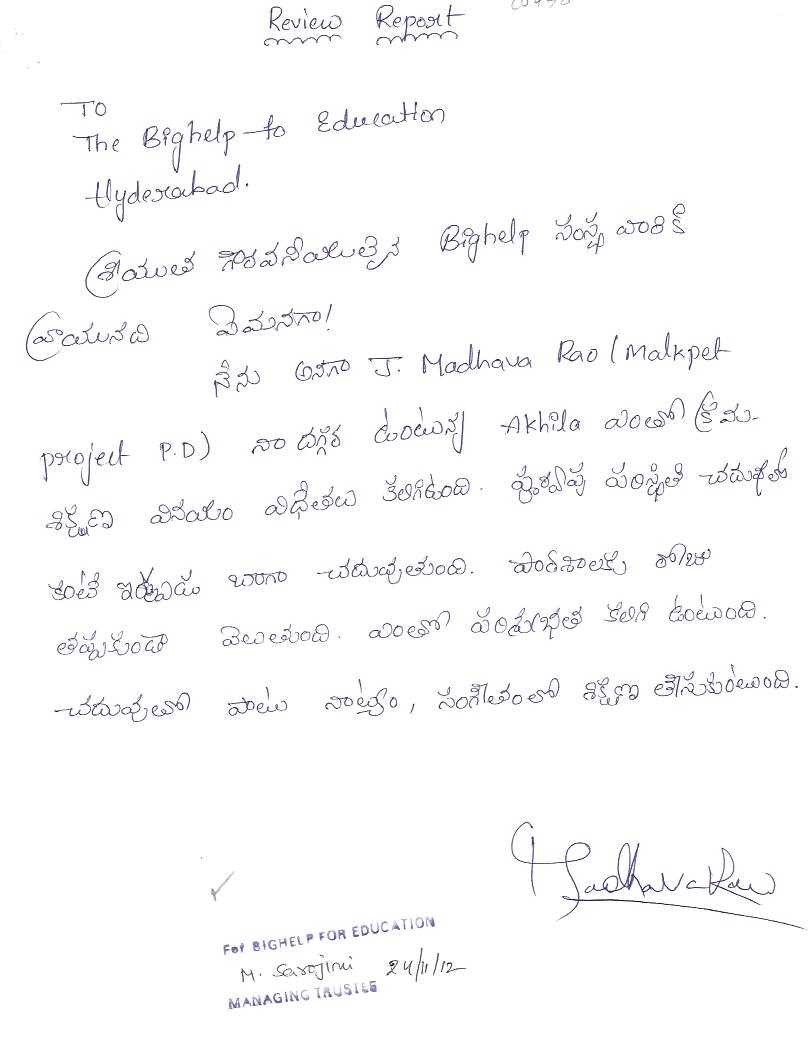 Review Report
To
The Bighelp to Education
Hyderabad.
శ్రీయుత గౌరవనీయులైన Bighelp సంస్థ వారికి
వ్రాయునది ఏమనగా!
నేను అనగా J. Madhava Rao (Malkpet
project P.D) నా దగ్గర ఉంటున్న Akhila ఎంతో క్రమ-
శిక్షణ వినయం విధేతలు కలిగిఉంది. పరిస్థితి
కంటే ఇప్పుడు బాగా చదువుతుంది. పాఠశాలకు రోజు
తప్పకుండా వెలుతుంది. ఎంతో పరిశుభ్రత కలిగి ఉంటుంది.
చదువుతో పాటు నాట్యం, సంగీతంలో శిక్షణ తీసుకుంటుంది.
Madhava Rao
For BIGHELP FOR EDUCATION
M. Sarojini 24/11/12
MANAGING TRUSTEE